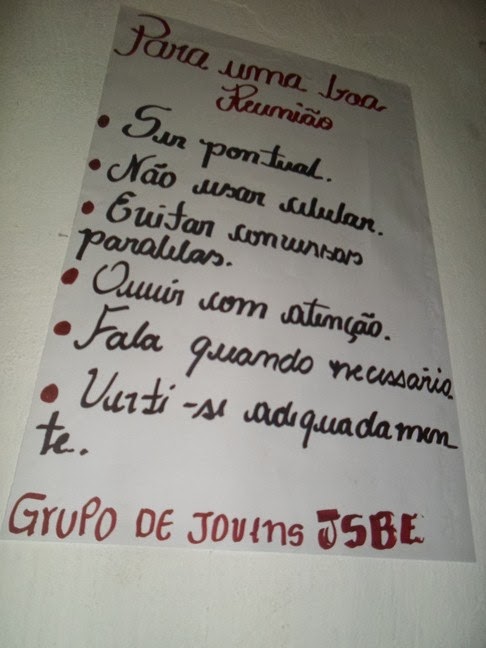 Para uma boa
Reunião
• Ser pontual.
• Não usar celular.
• Evitar conversas
paralelas.
• Ouvir com atenção.
• Fala quando necessário
• Vesti-se adequadamen
te.
GRUPO DE JOVENS JSBE